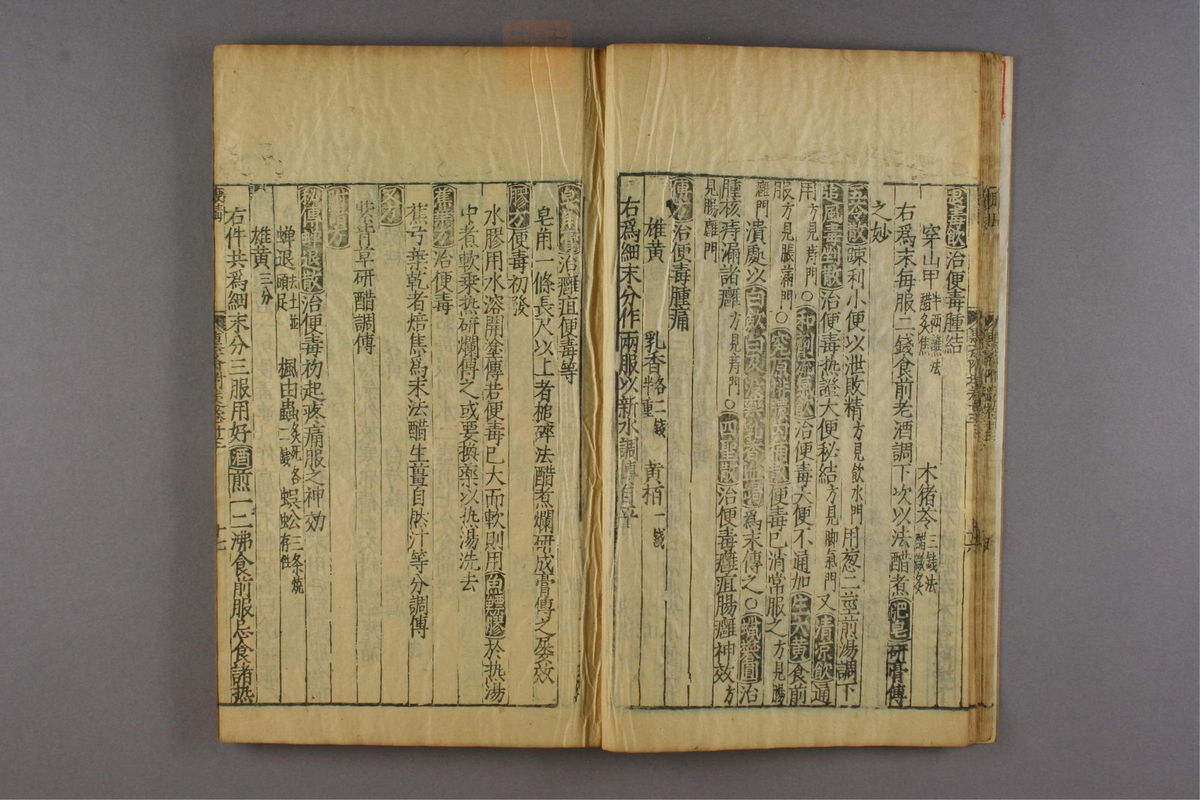 退毒飲治便毒腫結
穿山甲半兩蘸法醋炙焦　木猪苓三錢法醋微炙
右爲末每服二錢食前老酒調下次以法醋煮肥皂研膏傅
之妙
五苓散踈利小便以泄敗精方見飲水門用葱二莖煎湯調下
追風毒剉散治便毒熱證大便秘結方見脚氣門又清凉飲通
用方見痔門○治便毒大便不通加生大黃食前
服方見脹滿門○便毒已消常服之方見腸
癰門潰處以白歛白及爲末傅之○蠟礬圓治
腫核痔漏諸癰方見痔門○四聖散治便毒癰疽腸癰神效方
見腸癰門
傅方治便毒腫痛
雄黃　乳香各二錢半重　黃栢一錢
右爲細末分作兩服以新水調傅自平
治癰疽便毒等
皂角一條長尺以上者槌碎法醋煮爛研成膏傅之屢效
膠方便毒初發
水膠用水溶開塗傅若便毒已大而軟則用魚鰾膠於热湯
中煮軟乗热研爛傅之或要換藥以热湯洗去
蕉葉方治便毒
蕉葉乾者焙焦爲末法醋生薑自然汁等分調傅
又方
紫背草研醋調傅
秘傳蟬退散治便毒初起疼痛服之神効
蟬退去土並頭足　楓由蟲炙死各二錢　蜈蚣三条燒存性
雄黃三分
右件共爲細末分三服用好酒煎一二沸食前服忌食諸热
十七